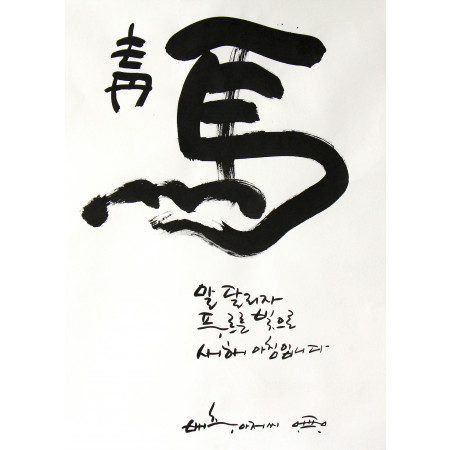 靑
馬
말 달리자
푸르른 빛으로
새해 아침입니다
배추아저씨